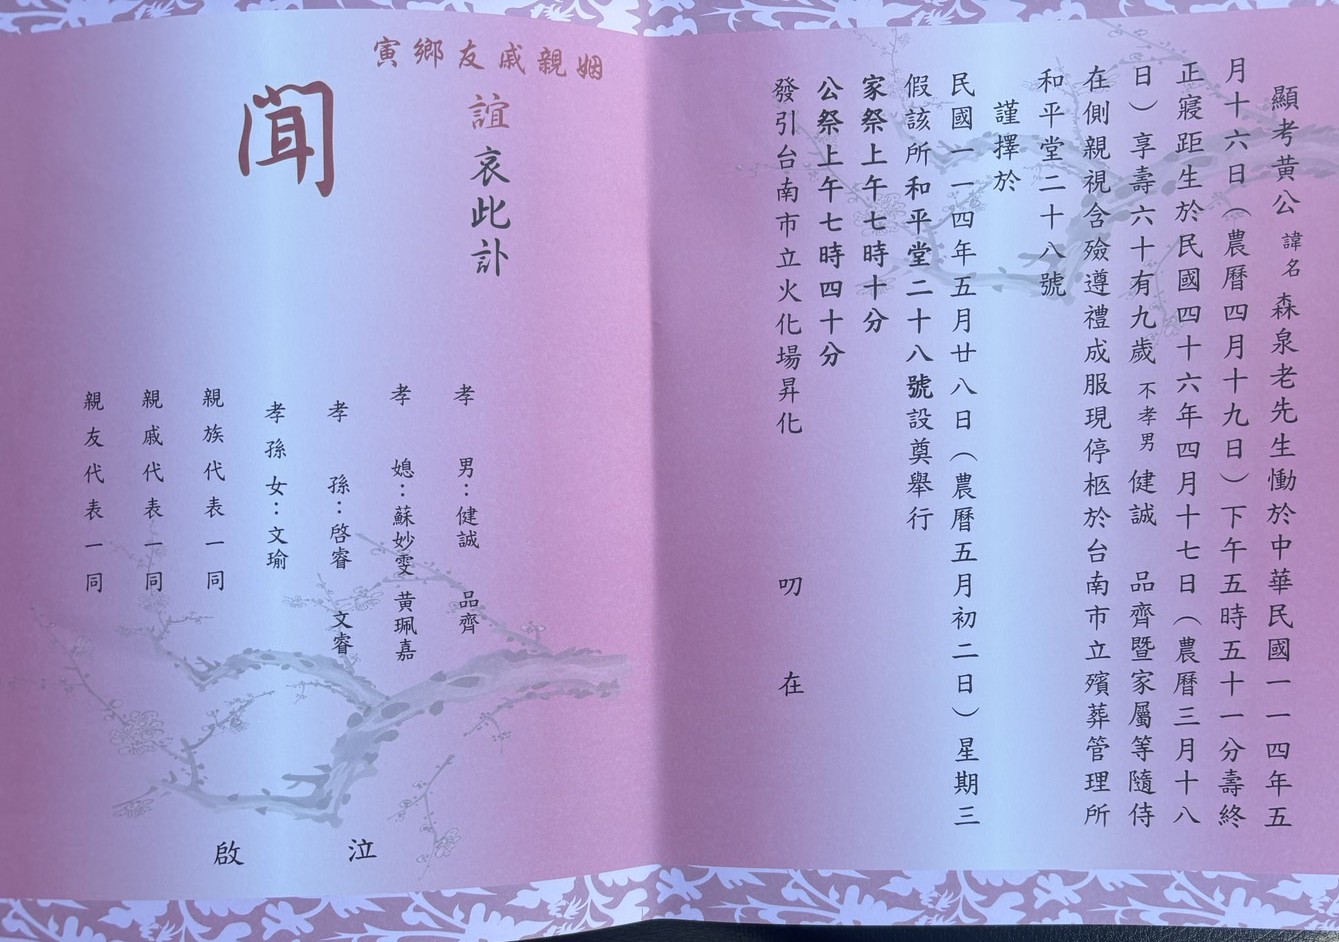 顯考黃公諱名森泉老先生慟於中華民國一一四年五
月十六日（農曆四月十九日）下午五時五十一分壽終
正寢距生於民國四十六年四月十七日（農曆三月十八
日）享壽六十有九歲不孝男健誠 品齊暨家屬等隨侍
在側親視含殮遵禮成服現停柩於台南市立殯葬管理所
和平堂二十八號
謹擇於
民國一一四年五月廿八日（農曆五月初二日）星期三
假該所和平堂二十八號設奠舉行
家祭上午七時十分
公祭上午七時四十分
發引台南市立火化場昇化
叨 在
姻親戚友鄉寅
誼哀此訃
聞
孝男：健誠 品齊
孝媳：蘇妙雯 黃珮嘉
孝孫：啓睿 文睿
孝孫女：文瑜
親族代表一同
親戚代表一同
親友代表一同
泣啟